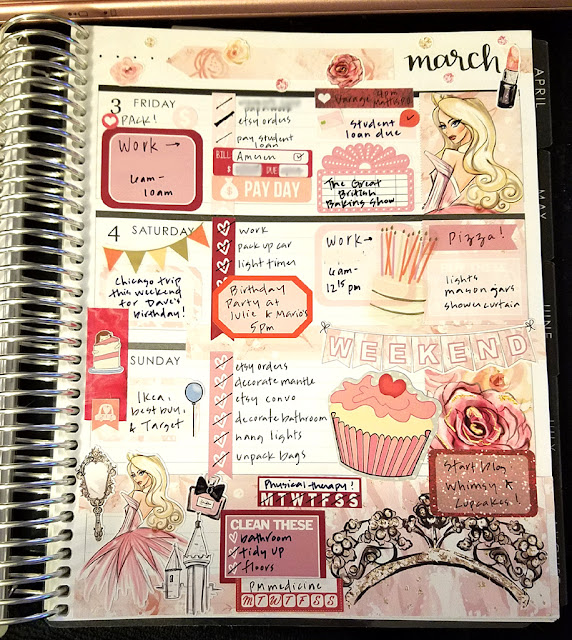 march
APRIL
MAY
JUNE
JULY
3 FRIDAY
PACK!
WORK →
6am-
10am
etsy orders
pay student
loan
BILL Ameren
$ DUE
PAY DAY
Student
loan due
The Great
British
Baking Show
4 SATURDAY
Chicago trip
this weekend
for Dave's
birthday!
work
pack up car
light timer
Birthday
Party at
Julie & Mario's
5pm
Work →
6am-
12:15 pm
Pizza!
lights
mason jars
shower curtain
WEEKEND
SUNDAY
Ikea,
best buy,
& Target
etsy orders
decorate mantle
etsy convo
decorate bathroom
hang lights
unpack bags
Start blog
Whimsy &
Cupcakes!
Physical therapy!
M T W T F S S
CLEAN THESE
bathroom
tidy up
floors
PM medicine
M T W T F S S